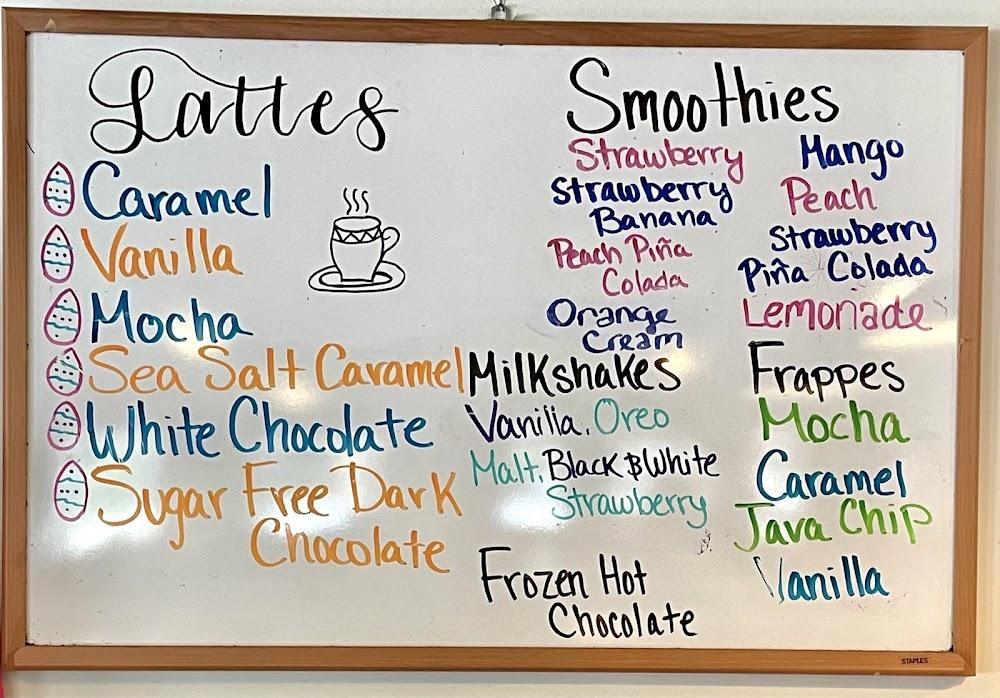 Lattes
Caramel
Vanilla
Mocha
Sea Salt Caramel
White Chocolate
Sugar Free Dark
Chocolate
Smoothies
Strawberry
Strawberry
Banana
Peach Piña
Colada
Orange
Cream
Mango
Peach
Strawberry
Piña Colada
Lemonade
Milkshakes
Vanilla, Oreo
Malt, Black & White
Strawberry
Frozen Hot
Chocolate
Frappes
Mocha
Caramel
Java Chip
Vanilla
STAPLES